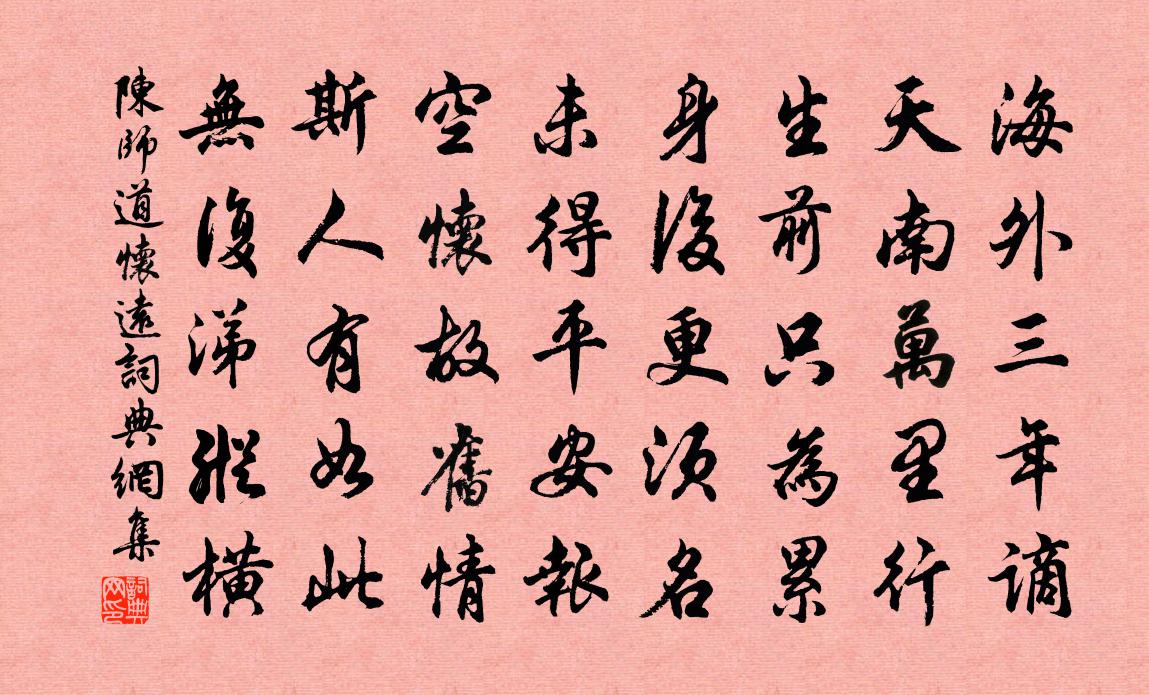 海外三年謫
天南萬里行
生前只為累
身後更須名
未得平安報
空懷故舊情
斯人有如此
無復涕縱橫
陳師道懷遠詞典網集
詞典網印